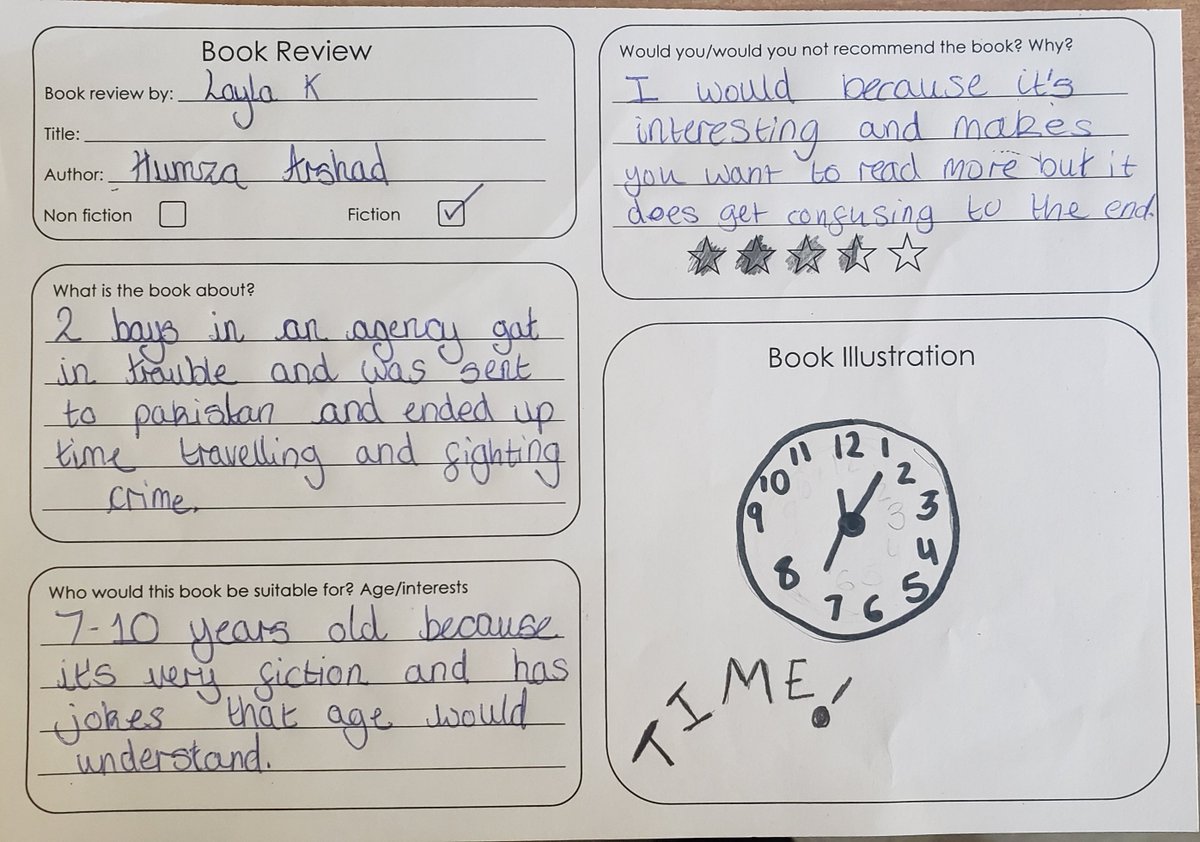 Book Review
Book review by: Layla K
Title:
Author: Humza Arshad
Non fiction
Fiction
What is the book about?
2 boys in an agency got
in trouble and was sent
to pakistan and ended up
time travelling and fighting
crime.
Who would this book be suitable for? Age/interests
7-10 years old because
it's very fiction and has
jokes that age would
understand.
Would you/would you not recommend the book? Why?
I would because it's
interesting and makes
you want to read more but it
does get confusing to the end.
Book Illustration
12
11 1
10 2
9 3
4
8 5
7 6
TIME!